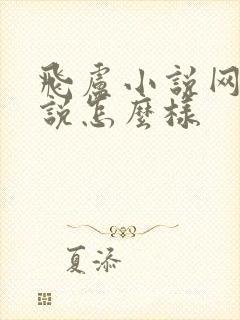 飛盧小説网
説怎麼樣
夏添